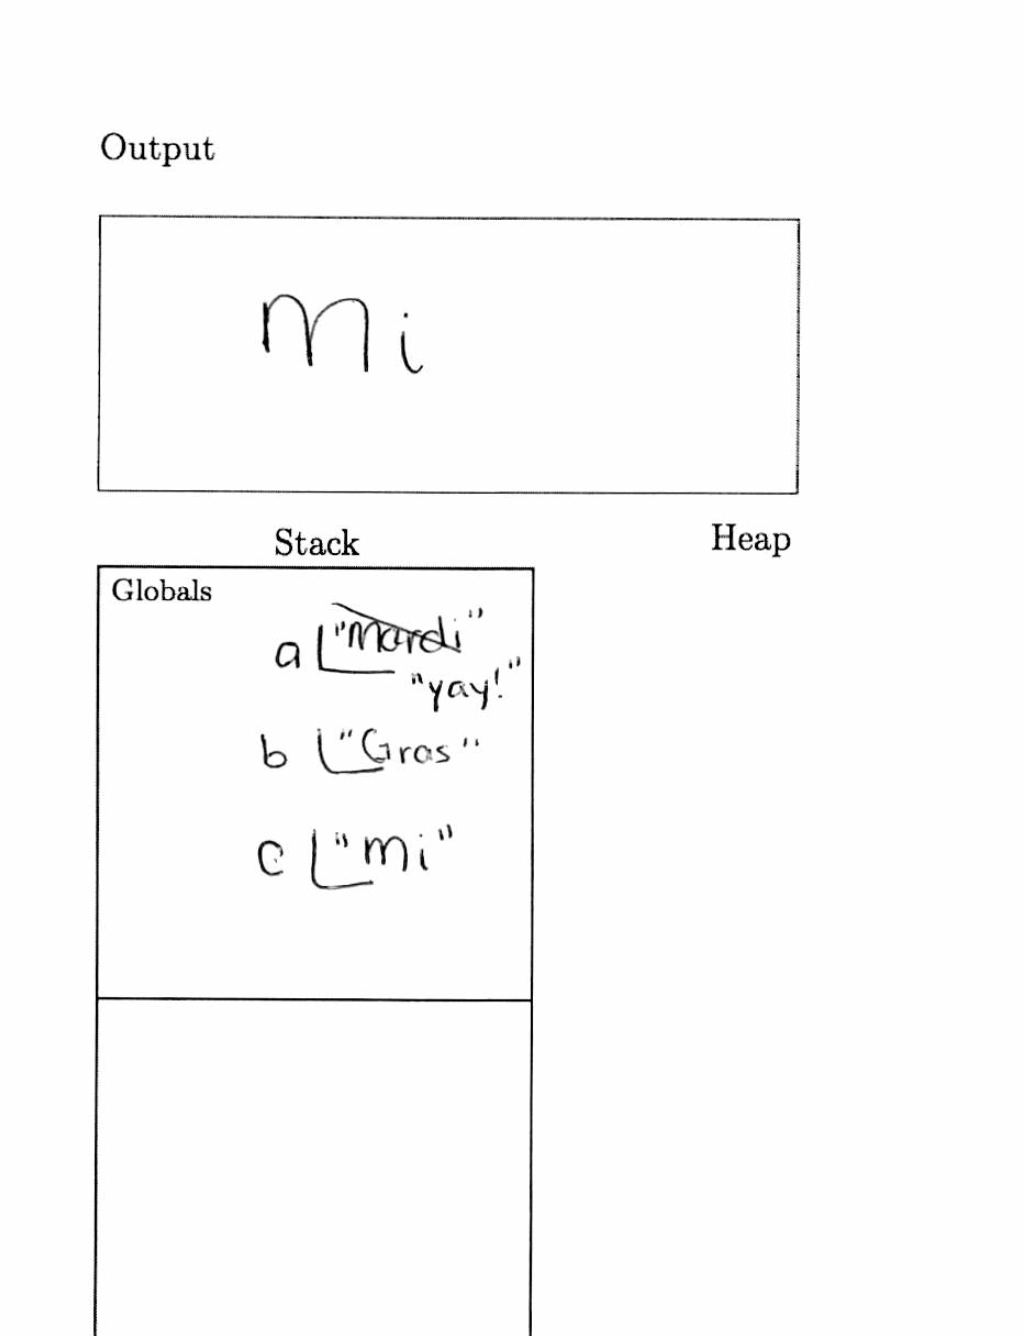 Output
Mi
Stack
Heap
Globals
a "Mardi"
"yay!"
b "Gras"
c "Mi"